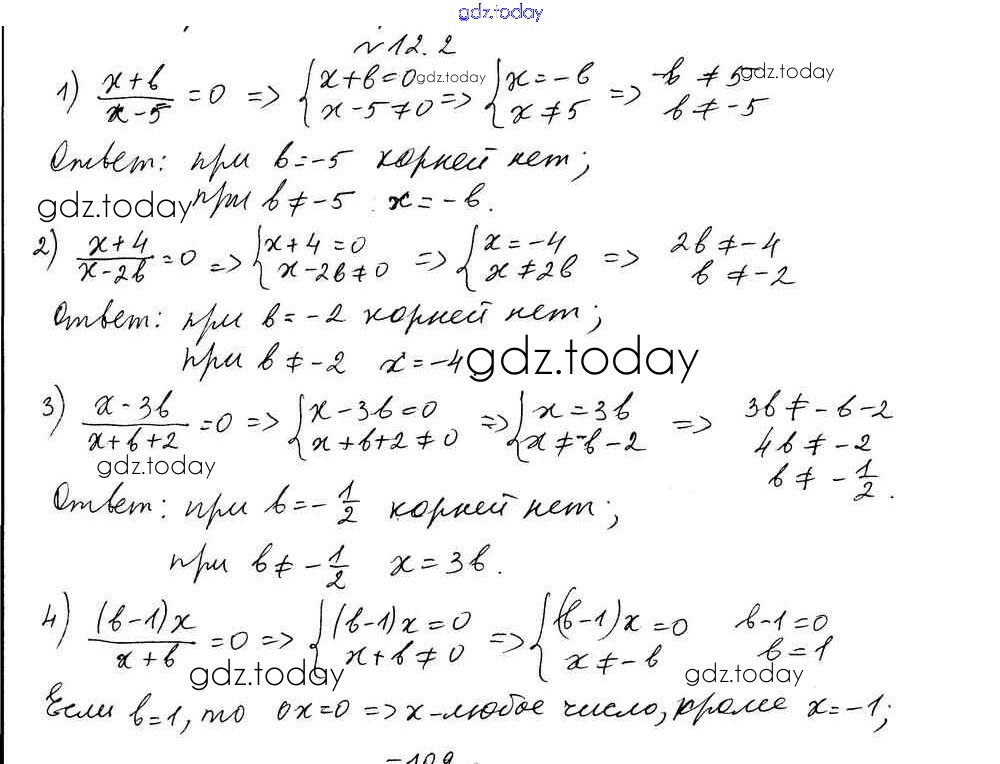 gdz.today
№12.2
1) (x+b)/(x-5) = 0 => {x+b=0; x-5≠0 gdz.today => {x=-b; x≠5 => -b≠5 gdz.today; b≠-5
Ответ: при b=-5 корней нет;
gdz.today при b≠-5 x=-b.
2) (x+4)/(x-2b) = 0 => {x+4=0; x-2b≠0 => {x=-4; x≠2b => 2b≠-4; b≠-2
Ответ: при b=-2 корней нет;
при b≠-2 x=-4 gdz.today
3) (x-3b)/(x+b+2) = 0 => {x-3b=0; x+b+2≠0 => {x=3b; x≠-b-2 => 3b≠-b-2; 4b≠-2; b≠-1/2.
gdz.today
Ответ: при b=-1/2 корней нет;
при b≠-1/2 x=3b.
4) ((b-1)x)/(x+b) = 0 => {(b-1)x=0; x+b≠0 => {(b-1)x=0; x≠-b b-1=0; b=1
gdz.today gdz.today
Если b=1, то 0x=0 => x-любое число, кроме x=-1;